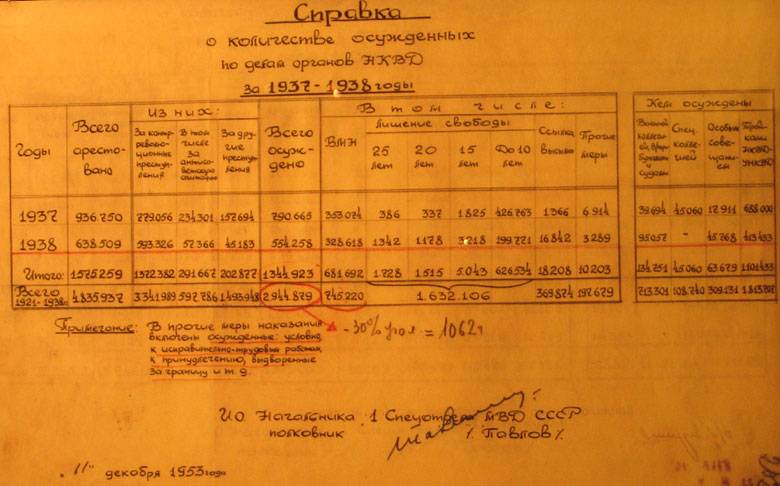 Справка
о количестве осужденных
по делам органов НКВД
за 1937-1938 годы
Годы
Всего арестовано
Из них:
За контрреволюционные преступления
В том числе за антисоветскую агитацию
За другие преступления
Всего осуждено
В том числе:
ВМН
лишение свободы
25 лет
20 лет
15 лет
До 10 лет
Ссылка высылка
Прочие меры
Кем осуждены
Спец. коллегией
Особым совещанием
Тройками НКВД-УНКВД
1937 936.750 779.056 234.301 157.694 790.665 353.074 386 337 1.825 426.763 1.366 6.914 39.694 45.060 17.911 688.000
1938 638.509 593.326 57.366 45.183 554.258 328.618 1342 1178 3218 199.771 16.842 3.289 95.057 - 45.768 413.433
Итого: 1575259 1372382 291.667 202.877 1344.923 681.692 1.728 1.515 5.043 626.534 18.208 10.203 134.751 45.060 63.679 1101433
Всего 1921-1938г. 4.835.937 3.341.989 1.493.948 2.944.879 745.220 1.632.106 369.874 197.679 213.301 108.740 309.131
Примечание: В прочие меры наказания
включены осужденные: условно
к исправительно-трудовым работам,
к принудлечению, выдворенные
за границу и т. д.
-30% угол = 1062т
ИО Начальника 1 Спецотдела МВД СССР
полковник /Павлов/
"11" декабря 1953 года